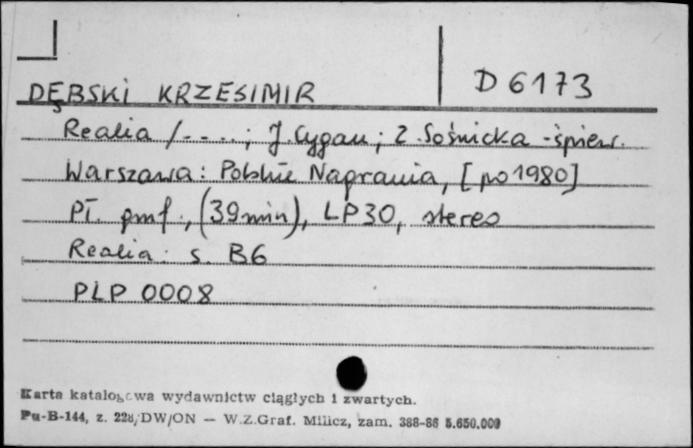 D 6173
DĘBSKI KRZESIMIR
Realia /- - - - ; J. Cygan ; Z. Sośnicka - śpiew.
Warszawa : Polskie Nagrania, [po 1980]
Pł. gmf., (39 min), LP30, stereo
Realia : s. B6
PLP 0008
Karta katalogowa wydawnictw ciągłych i zwartych.
Pu-B-144, z. 228/DW/ON — W.Z.Graf. Milicz, zam. 388-88 5.650.000